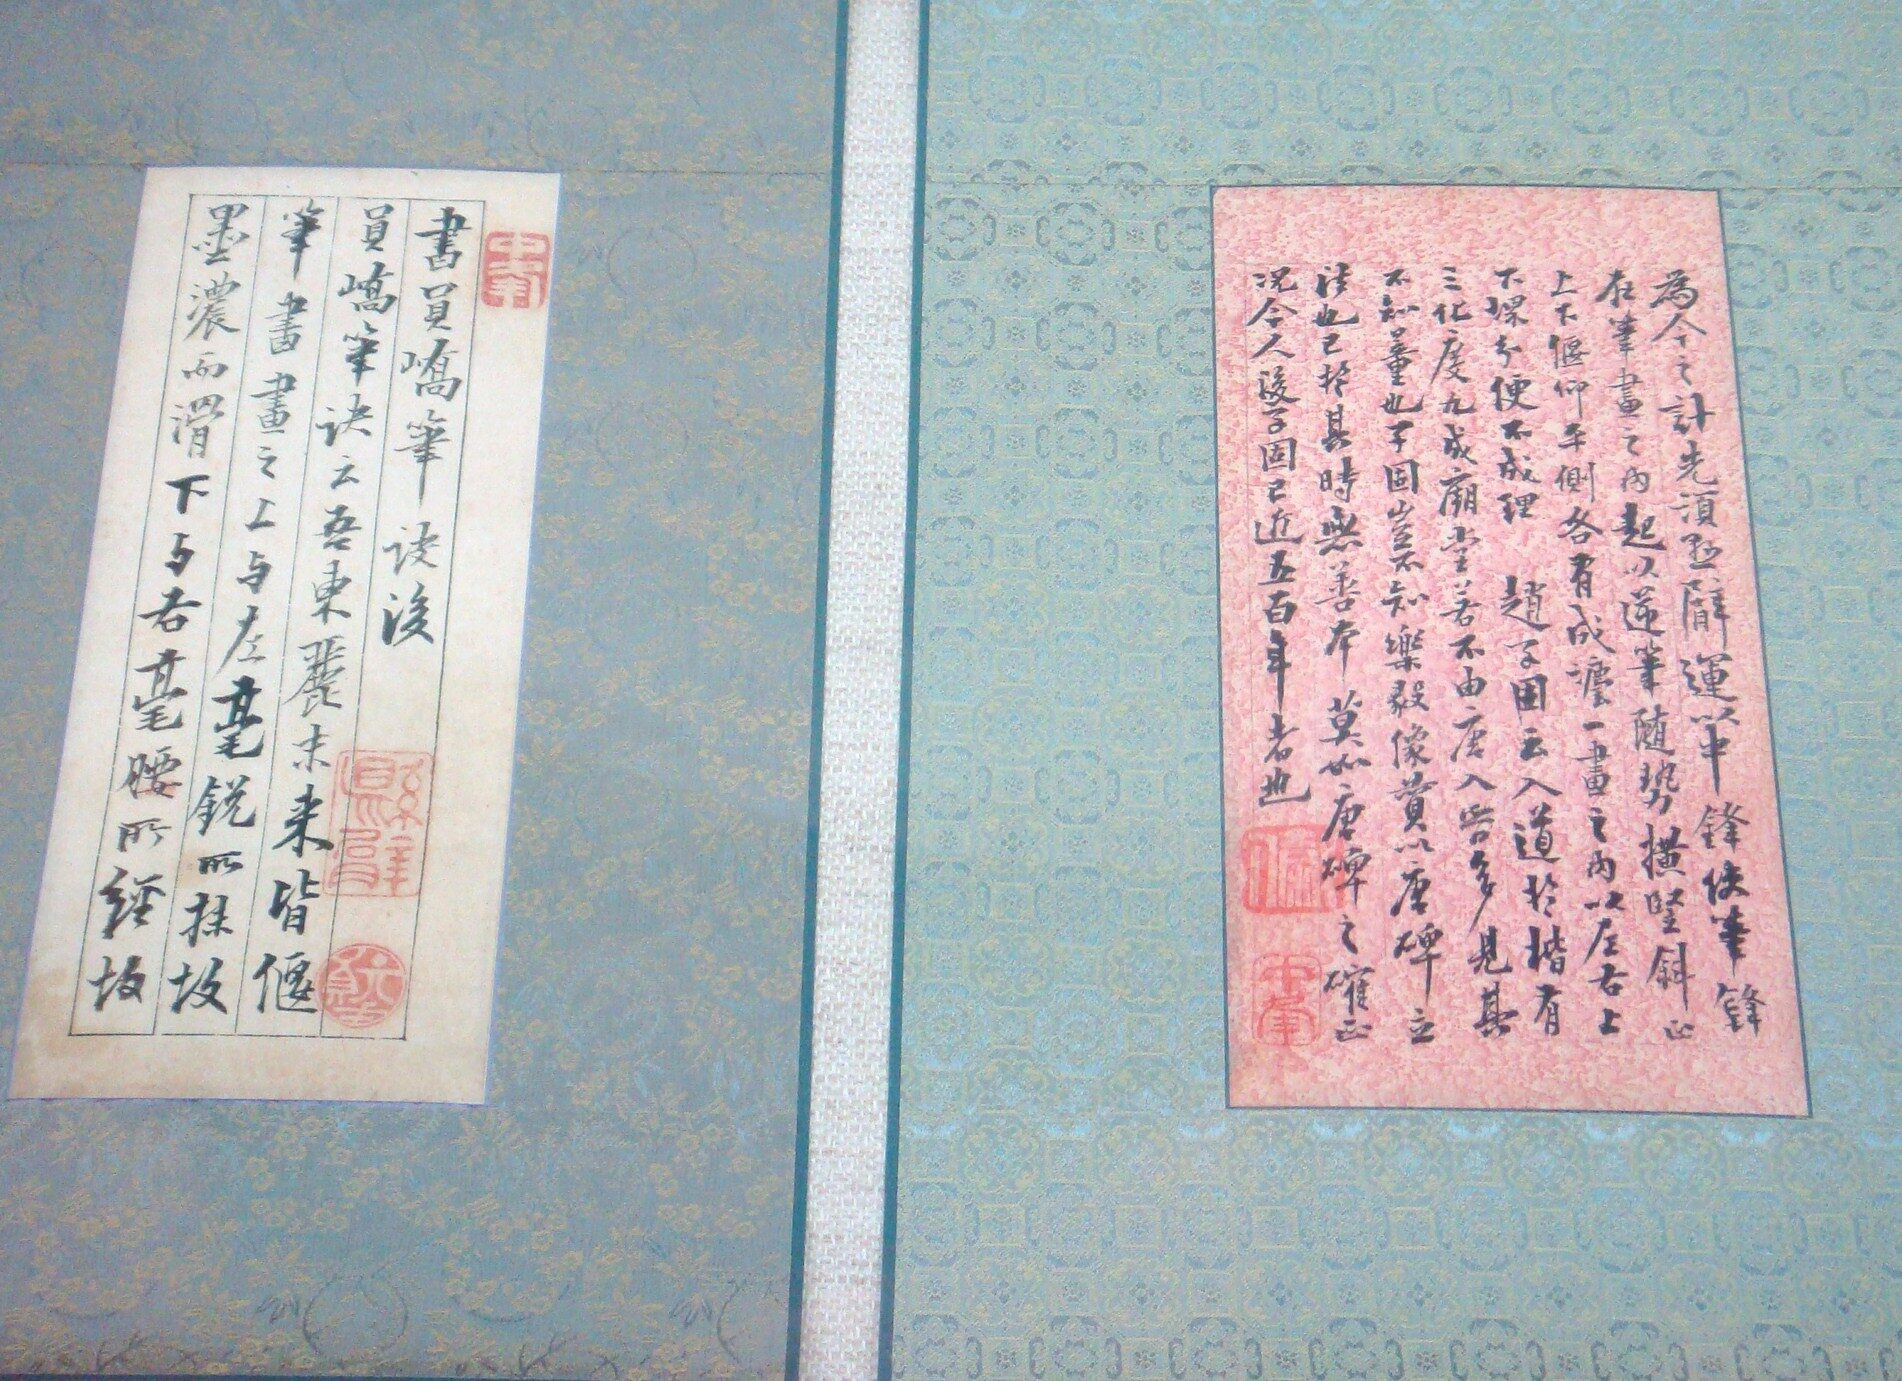 書員嶠筆訣後
員嶠筆訣云吾東麗末來皆偃
筆書畫之上与左毫銳所抹故
墨濃而滑下与右毫腰所經故
為今之計先須懸臂運以中鋒使筆鋒
在筆畫之內起以逆筆隨勢橫竪斜正
上下偃仰平側各有成灋一畫之內以左右上
下深分便不成理 趙子固云入道於楷有
三化度九成廟堂若不由唐入皆多見其
不知量也子固豈不知樂毅像贊以唐碑立
法也已於其時無善本莫如唐碑之確正
况今人後子固已近五百年者也